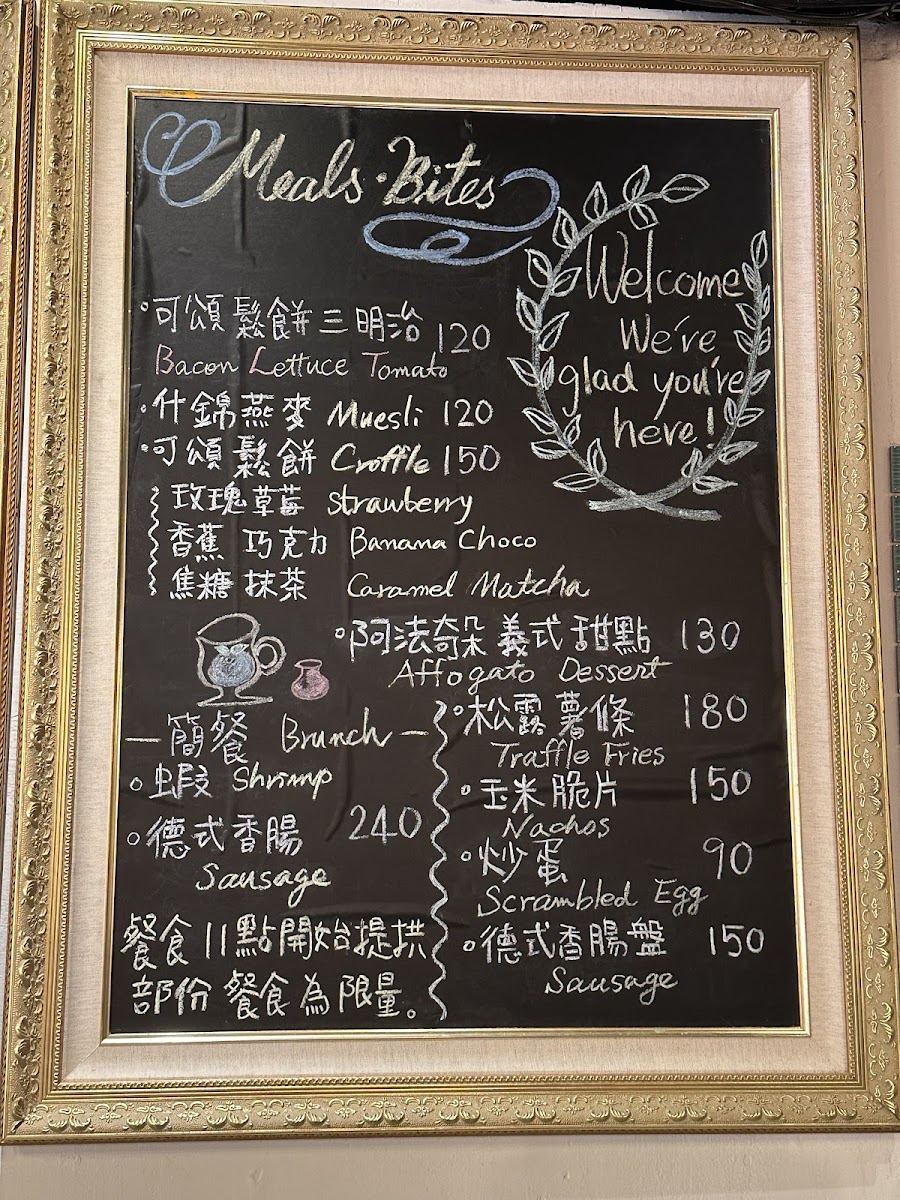 Meals · Bites
Welcome
We're
glad you're
here!
可頌鬆餅三明治 120
Bacon Lettuce Tomato
什錦燕麥 Muesli 120
可頌鬆餅 Croffle 150
玫瑰草莓 Strawberry
香蕉 巧克力 Banana Choco
焦糖 抹茶 Caramel Matcha
阿法奇朵 義式甜點 130
Affogato Dessert
—簡餐 Brunch—
蝦 Shrimp
德式香腸 240
Sausage
餐食11點開始提拱
部份餐食為限量。
松露薯條 180
Traffle Fries
玉米脆片 150
Nachos
炒蛋 90
Scrambled Egg
德式香腸盤 150
Sausage